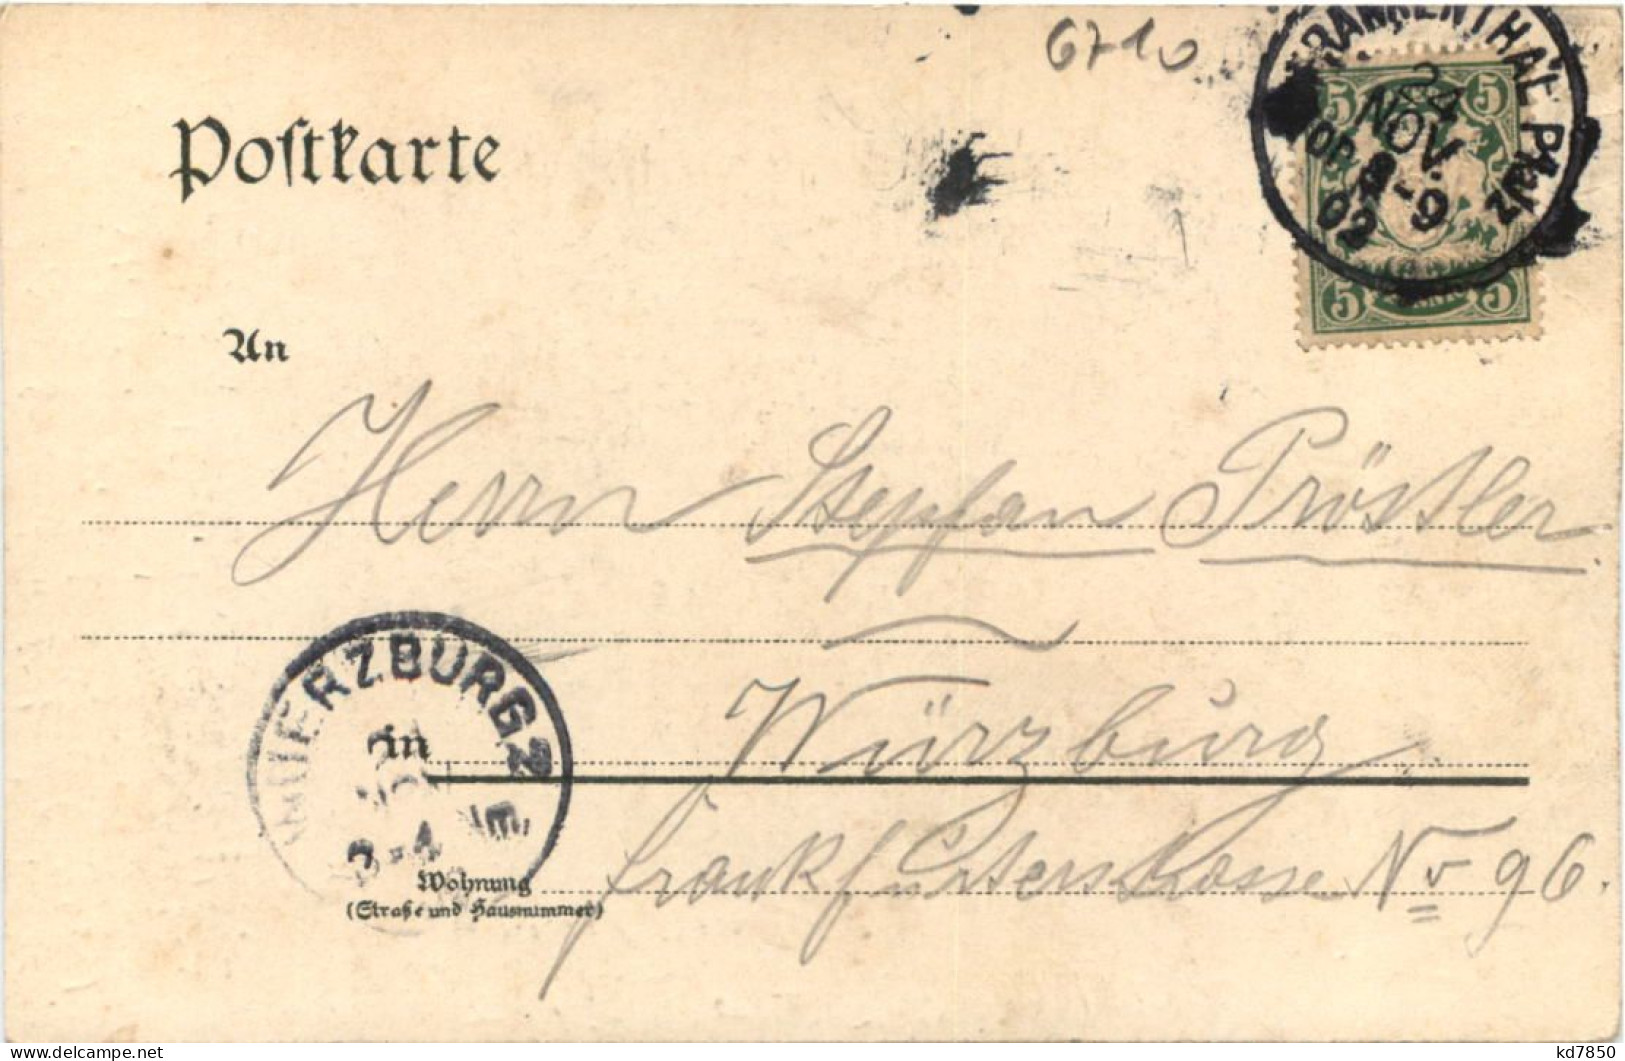 6710
FRANKENTHAL Pfalz
24
NOV.
8-9
02
5 5
5 5
Postkarte
An
Herrn Stephan Pröstler
WUERZBURG 2
in Würzburg
3-4
Frankfurterstrasse No 96.
Wohnung
(Straße und Hausnummer)
kd7850